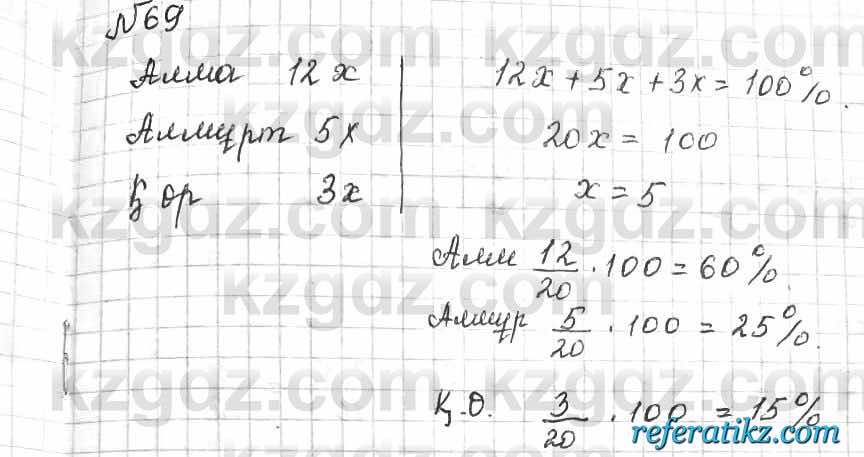 №69
Алма 12x
Алмұрт 5x
Қ өр 3x
12x + 5x + 3x = 100%.
20x = 100
x = 5
Алм 12/20 · 100 = 60%.
Алмұр 5/20 · 100 = 25%.
Қ.Ө. 3/20 · 100 = 15%
kzgdz.com
referatikz.com